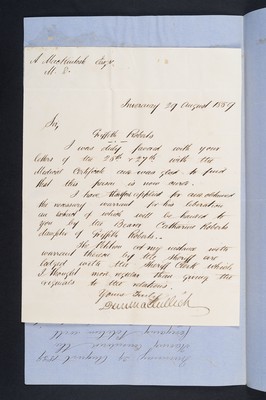 A MacKintosh Esqr.
M. D.
Inveraray 29 August 1859
Sir,
Griffith Roberts
I was duly favord with your
letters of the 25th & 27th with the
Medical Certificate and was glad to find
that this person is now sound.
I have therefore applied for and obtained
the necessary warrant for his liberation
an extract of which will be handed to
you by the Bearer Catharine Roberts
daughter of Griffith Roberts.
The Petition at my instance with
warrant thereon by the Sheriff are
lodged with the Sheriff Clerk which
I thought more regular than giving the
originals to the relations.
Yours Truly
29 August 1859